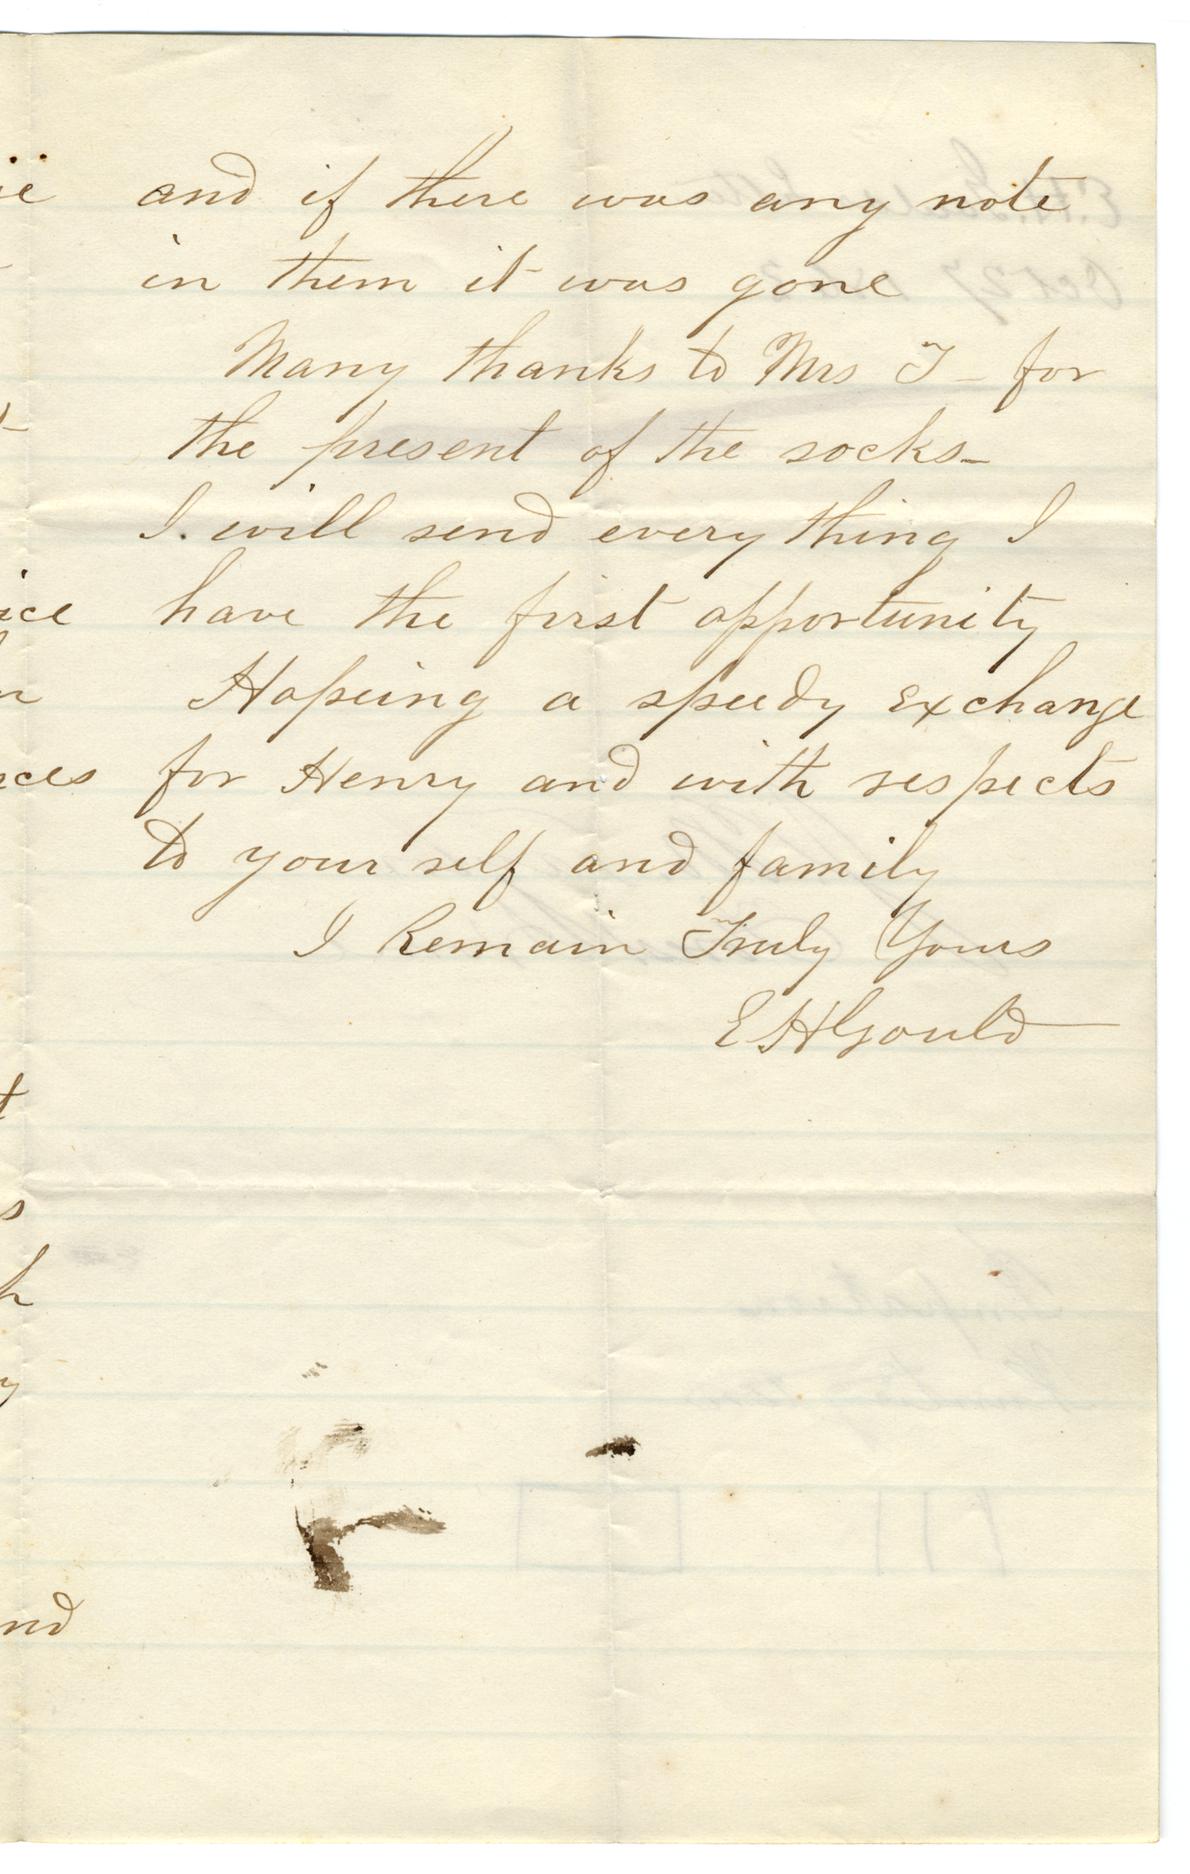 and if there was any note
in them it was gone
Many thanks to Mrs T- for
the present of the socks-
I will send every thing I
have the first opportunity
Hopeing a speedy exchange
for Henry and with respects
to your self and family
I Remain Truly Yours
E H Gould